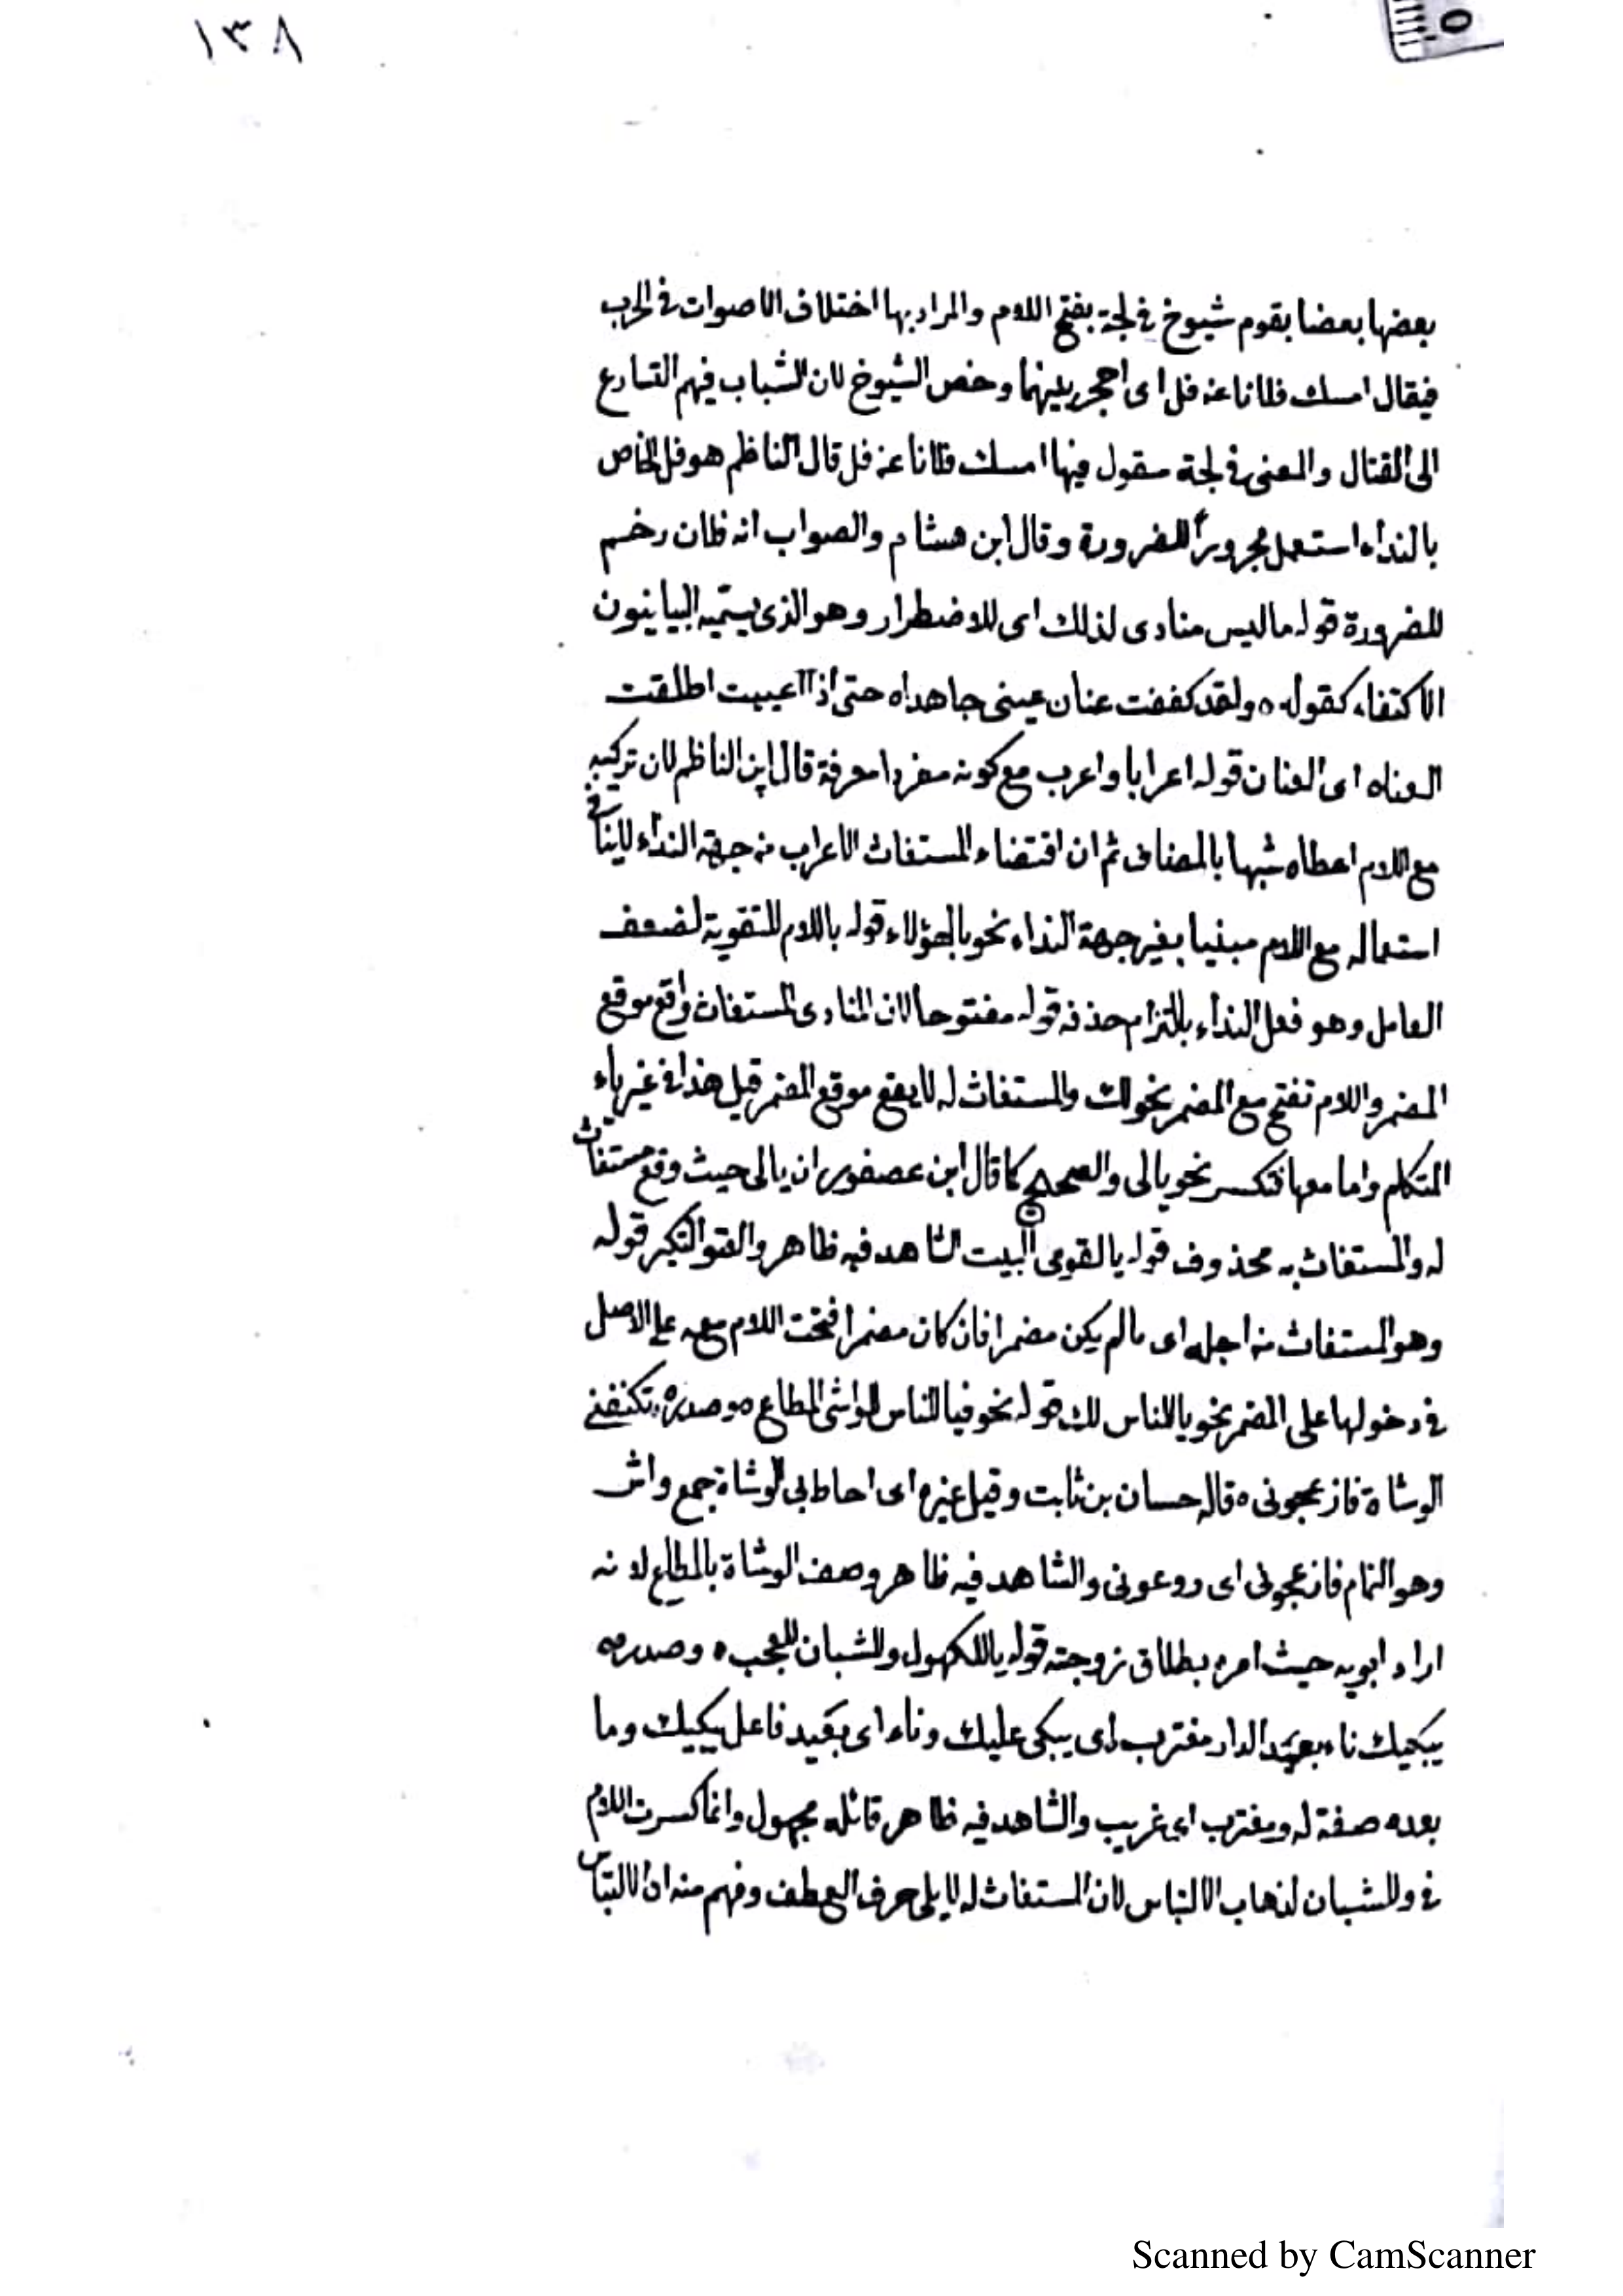 ١٣٨
بعضها بعضا بقوم شيوخ فى لجة بفتح اللام والمراد بها اختلاف الاصوات فى الحرب
فيقال امسك فلانا عن فل اى احجر بينهما وخص الشيوخ لان الشباب فيهم التسارع
الى القتال والمعنى فى لجة مقول فيها امسك فلانا عن فل قال الناظم هو فل الخاص
بالنداء استعمل مجروراً للضرورة وقال ابن هشام والصواب انه فلان رخم
للضرورة قوله ما ليس منادى لذلك اى للاضطرار وهو الذى يسميه البيانيون
الاكتفاء كقوله ه ولقد كففت عنان عينى جاهدا ه حتى اذا اعييت اطلقت
العناه اى العنان قوله اعرابا واعرب مع كونه مفردا معرفة قال ابن الناظم لان تركيبه
مع اللام اعطاه شبها بالمضاف ثم ان اقتضاء المستغاث الاعراب من جهة النداء لاينافى
استعماله مع اللام مبنيا بغير جهة النداء نحو يالهؤلاء قوله باللام للتقوية لضعف
العامل وهو فعل النداء بالتزام حذفه قوله مفتوحا لان المنادى المستغاث واقع موقع
المضمر واللام تفتح مع المضمر نحو لك والمستغاث له لا يقع موقع المضمر قيل هذا فى غير ياء
المتكلم واما معها فتكسر نحو يالى والصحيح كما قال ابن عصفور ان يالى حيث وقع مستغاث
له والمستغاث به محذوف قوله يالقومى البيت الشاهد فيه ظاهر والعتو التكبر قوله
وهو المستغاث من اجله اى مالم يكن مضمرا فان كان مضمرا فتحت اللام معه على الاصل
فى دخولها على المضمر نحو ياللناس لك قوله نحو فيا للناس للواشى المطاع ه وصدره تكنفنى
الوشاة فازعجونى ه قاله حسان بن ثابت وقيل غيره اى احاط بى الوشاة جمع واش
وهو النمام فازعجونى اى روعونى والشاهد فيه ظاهر وصف الوشاة بالمطاع لانه
اراد ابويه حيث امره بطلاق زوجته قوله ياللكهول وللشبان للعجب ه وصدره
يبكيك ناء بعيد الدار مغترب اى يبكى عليك وناء اى بعيد فاعل يبكيك وما
بعده صفة له ومغترب اى غريب والشاهد فيه ظاهر قائله مجهول وانما كسرت اللام
فى وللشبان لذهاب الالتباس لان المستغاث له لا يلى حرف العطف وفهم منه ان الالتباس
Scanned by CamScanner